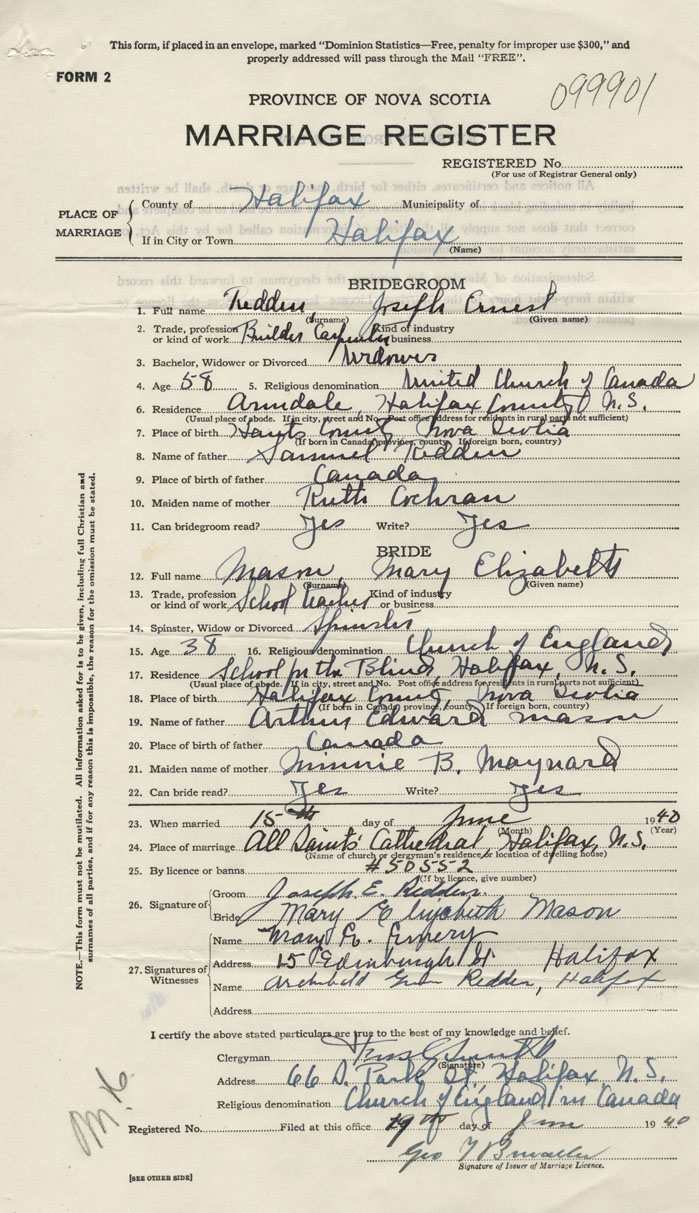 This form, if placed in an envelope, marked "Dominion Statistics—Free, penalty for improper use $300," and
properly addressed will pass through the Mail "FREE".
FORM 2
099901
PROVINCE OF NOVA SCOTIA
MARRIAGE REGISTER
REGISTERED No.
(For use of Registrar General only)
PLACE OF MARRIAGE
County of Halifax Municipality of
If in City or Town Halifax
(Name)
BRIDEGROOM
1. Full name Redden, Joseph Ernest
(Surname) (Given name)
2. Trade, profession or kind of work Builder Carpenter Kind of industry or business
3. Bachelor, Widower or Divorced Widower
4. Age 58 5. Religious denomination United Church of Canada
6. Residence Armdale, Halifax County N.S.
(Usual place of abode. If in city, street and No. Post office address for residents in rural parts not sufficient)
7. Place of birth Hants County Nova Scotia
(If born in Canada, province, county. If foreign born, country)
8. Name of father Samuel Redden
9. Place of birth of father Canada
10. Maiden name of mother Ruth Cochran
11. Can bridegroom read? Yes Write? Yes
BRIDE
12. Full name Mason, Mary Elizabeth
(Surname) (Given name)
13. Trade, profession or kind of work School teacher Kind of industry or business
14. Spinster, Widow or Divorced Spinster
15. Age 38 16. Religious denomination Church of England
17. Residence School for the Blind, Halifax, N.S.
(Usual place of abode. If in city, street and No. Post office address for residents in rural parts not sufficient)
18. Place of birth Halifax County Nova Scotia
(If born in Canada province, county. If foreign born, country)
19. Name of father Arthur Edward Mason
20. Place of birth of father Canada
21. Maiden name of mother Minnie B. Maynard
22. Can bride read? Yes Write? Yes
23. When married 15th day of June 1940
(Month) (Year)
24. Place of marriage All Saints Cathedral, Halifax, N.S.
(Name of church or clergyman's residence or location of dwelling house)
25. By licence or banns #50552
(If by licence, give number)
26. Signature of
Groom Joseph E. Redden.
Bride Mary Elizabeth Mason
27. Signatures of Witnesses
Name Mary E. Emery
Address 15 Edinburgh St. Halifax
Name Archibald Redden, Halifax
Address
I certify the above stated particulars are true to the best of my knowledge and belief.
Clergyman
(Signature)
Address 66 S. Park St. Halifax N.S.
Religious denomination Church of England in Canada
Registered No. Filed at this office 19th day of June 1940
Geo
Signature of Issuer of Marriage Licence.
[SEE OTHER SIDE]
NOTE.—This form must not be mutilated. All information asked for is to be given, including full Christian and
surnames of all parties, and if for any reason this is impossible, the reason for the omission must be stated.